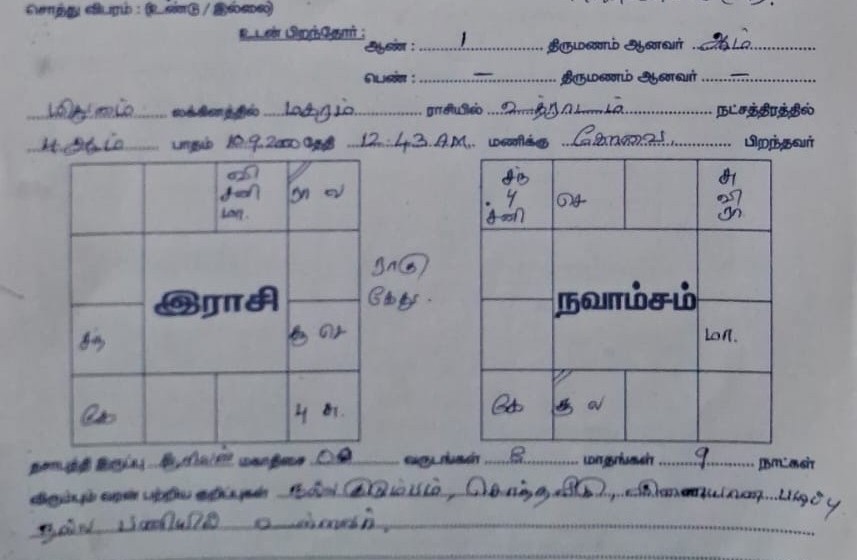 சொத்து விபரம் : (உண்டு / இல்லை)
உடன் பிறந்தோர் :
ஆண் : 1 திருமணம் ஆனவர்
பெண் : — திருமணம் ஆனவர் —
மிதுனம் லக்கினத்தில் மகரம் ராசியில் உத்ராடம் நட்சத்திரத்தில்
பாதம் தேதி 12:43 A.M. மணிக்கு கோவை பிறந்தவர்
வி சனி மா.
ரா ல
சந்
பு
சனி
செ
சு
வி
ரா
ராகு
கேது.
இராசி
நவாம்சம்
சந்
சூ செ
மா.
கே
பு சு.
கே
சூ ல
தசாபுத்தி இருப்பு சூரியன் மகாதிசை வருடங்கள் மாதங்கள் 9 நாட்கள்
விரும்பும் வரன் பற்றிய குறிப்புகள் நல்ல குடும்பம், சொந்தவீடு, படிப்பு
நல்ல பணியில் உள்ளவர்.